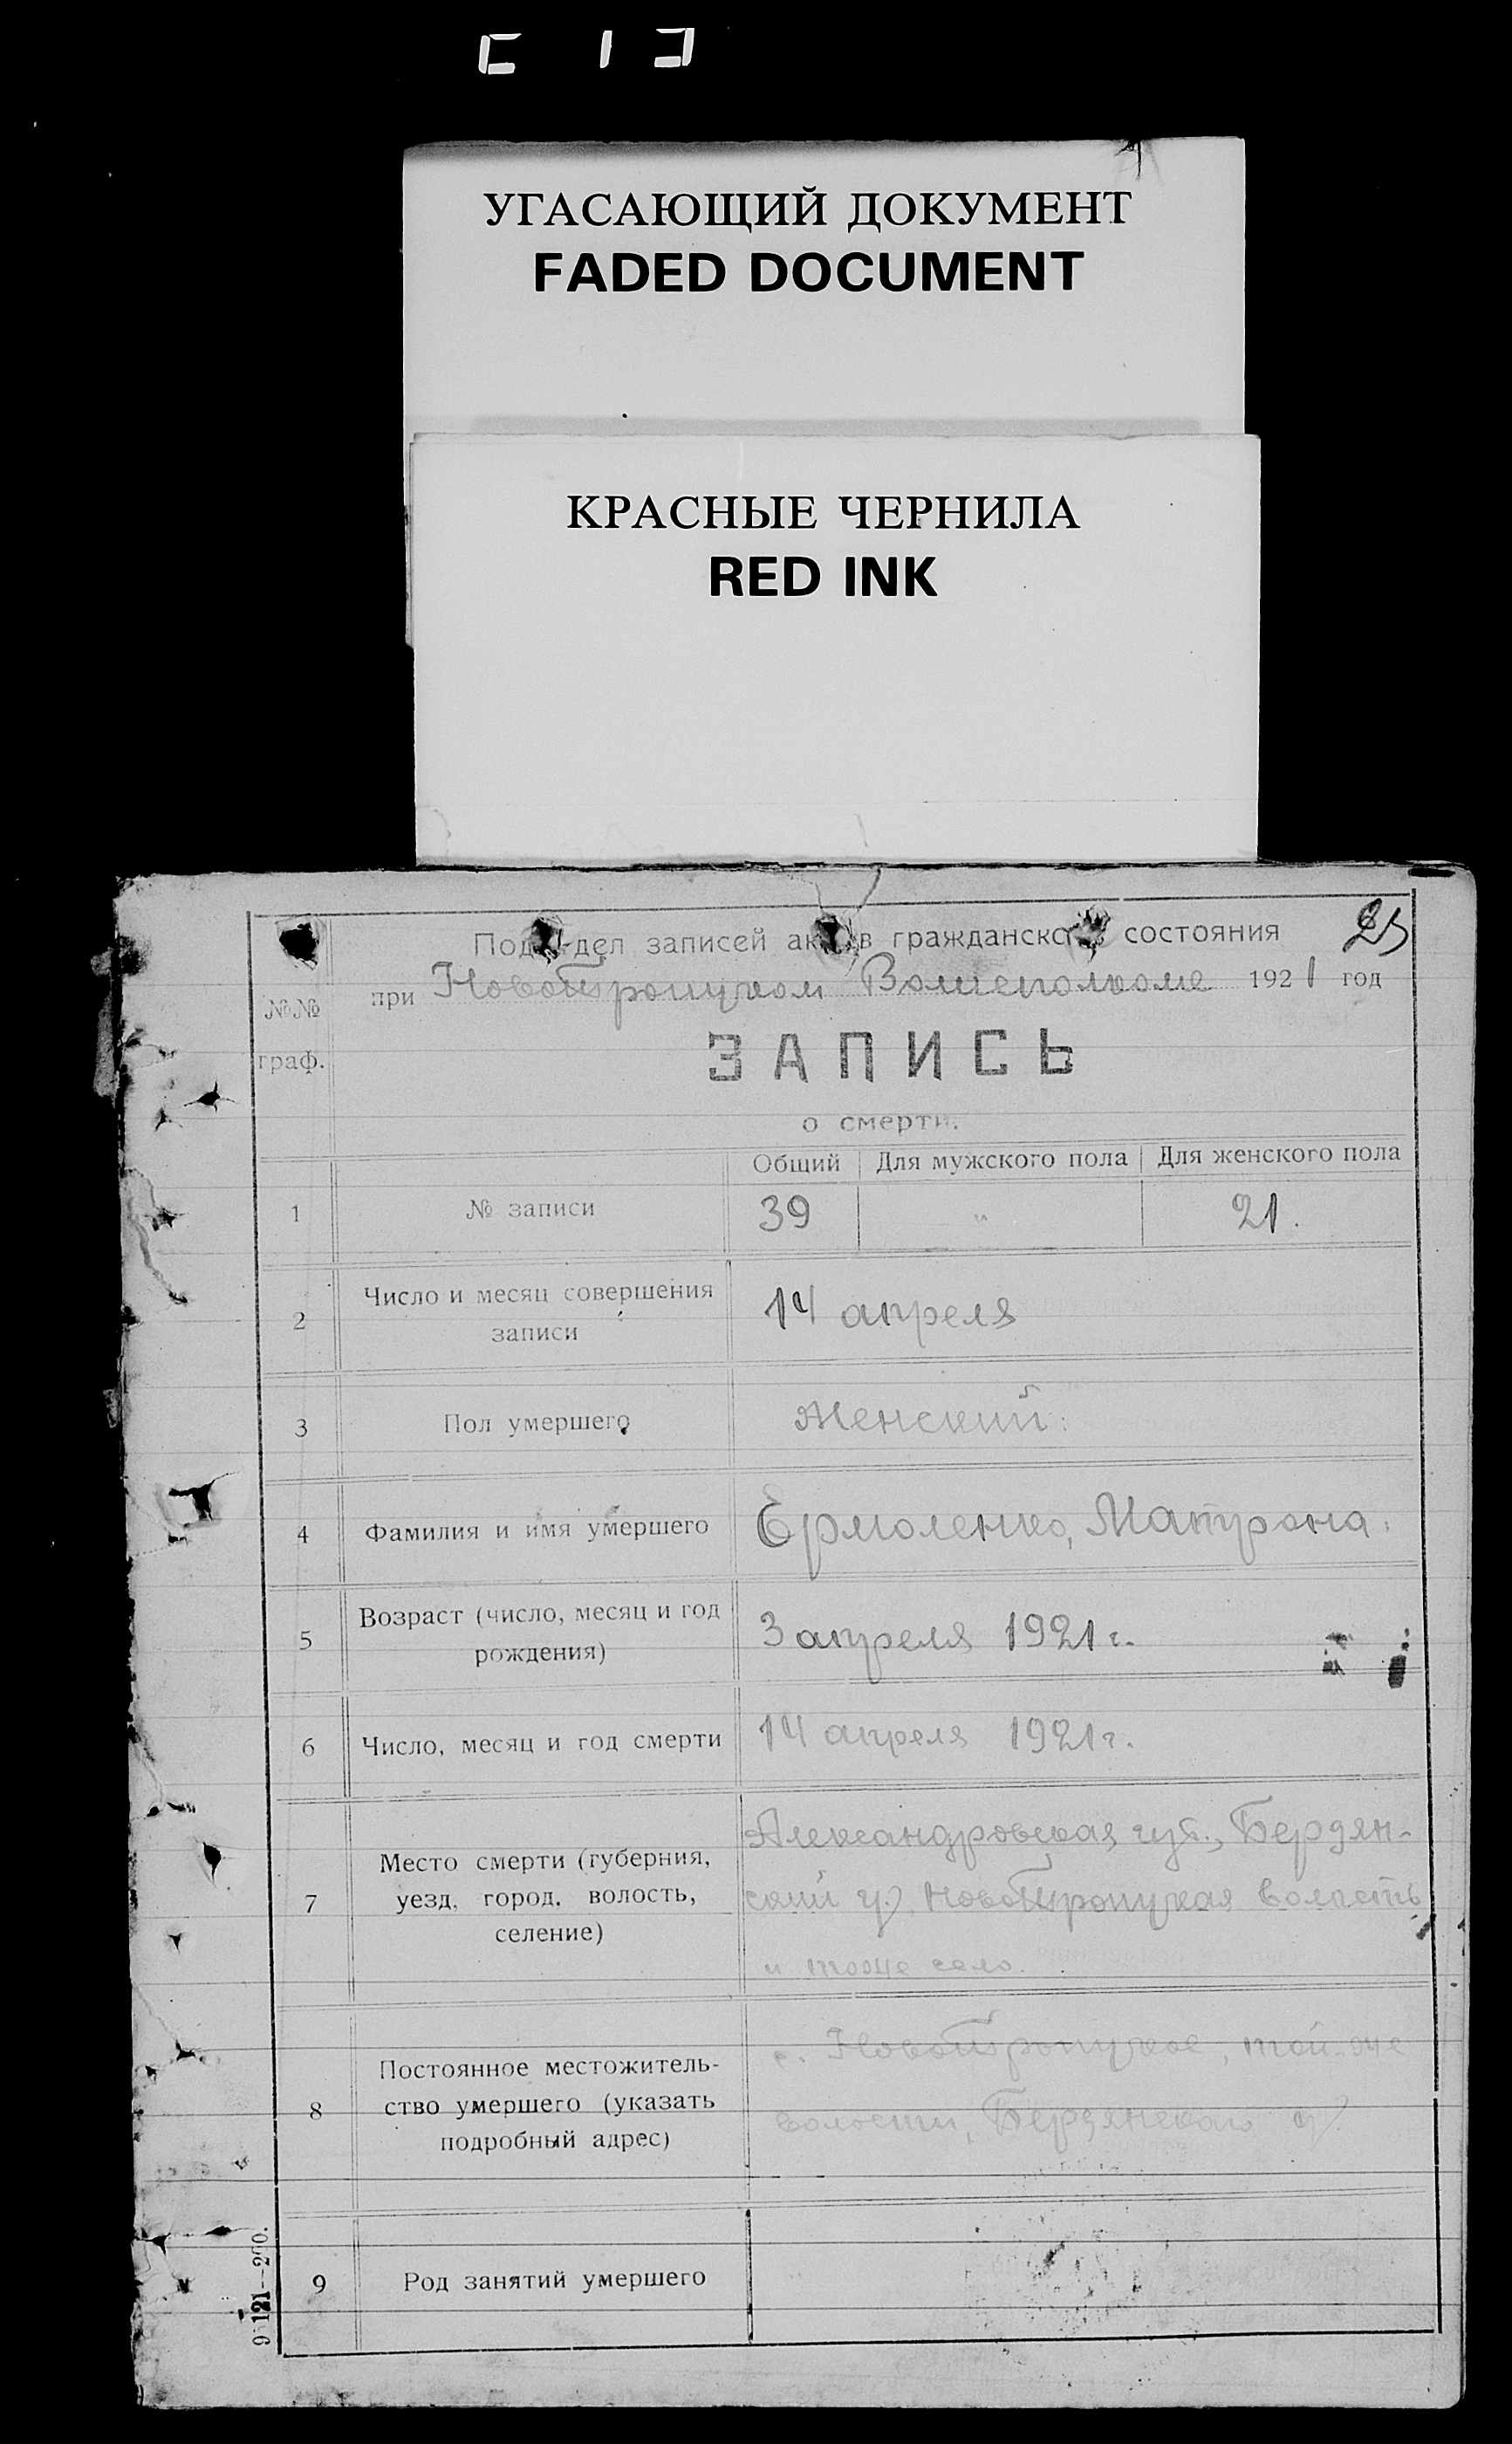 УГАСАЮЩИЙ ДОКУМЕНТ
FADED DOCUMENT
КРАСНЫЕ ЧЕРНИЛА
RED INK
25
Подотдел записей актов гражданского состояния
при Новотроицком Волисполкоме 1921 год
№№
граф.
ЗАПИСЬ
о смерти.
Общий Для мужского пола Для женского пола
1 № записи 39 " 21.
2 Число и месяц совершения
записи
14 апреля
3 Пол умершего Женский.
4 Фамилия и имя умершего Ермоленко, Матрона.
5 Возраст (число, месяц и год
рождения)
3 апреля 1921 г.
6 Число, месяц и год смерти 14 апреля 1921 г.
7 Место смерти (губерния,
уезд, город, волость,
селение)
Александровская губ., Бердян-
ский у., Новотроицкая волость
и тоже село.
8 Постоянное местожитель-
ство умершего (указать
подробный адрес)
с. Новотроицкое, той-же
волости, Бердянского у.
9 Род занятий умершего